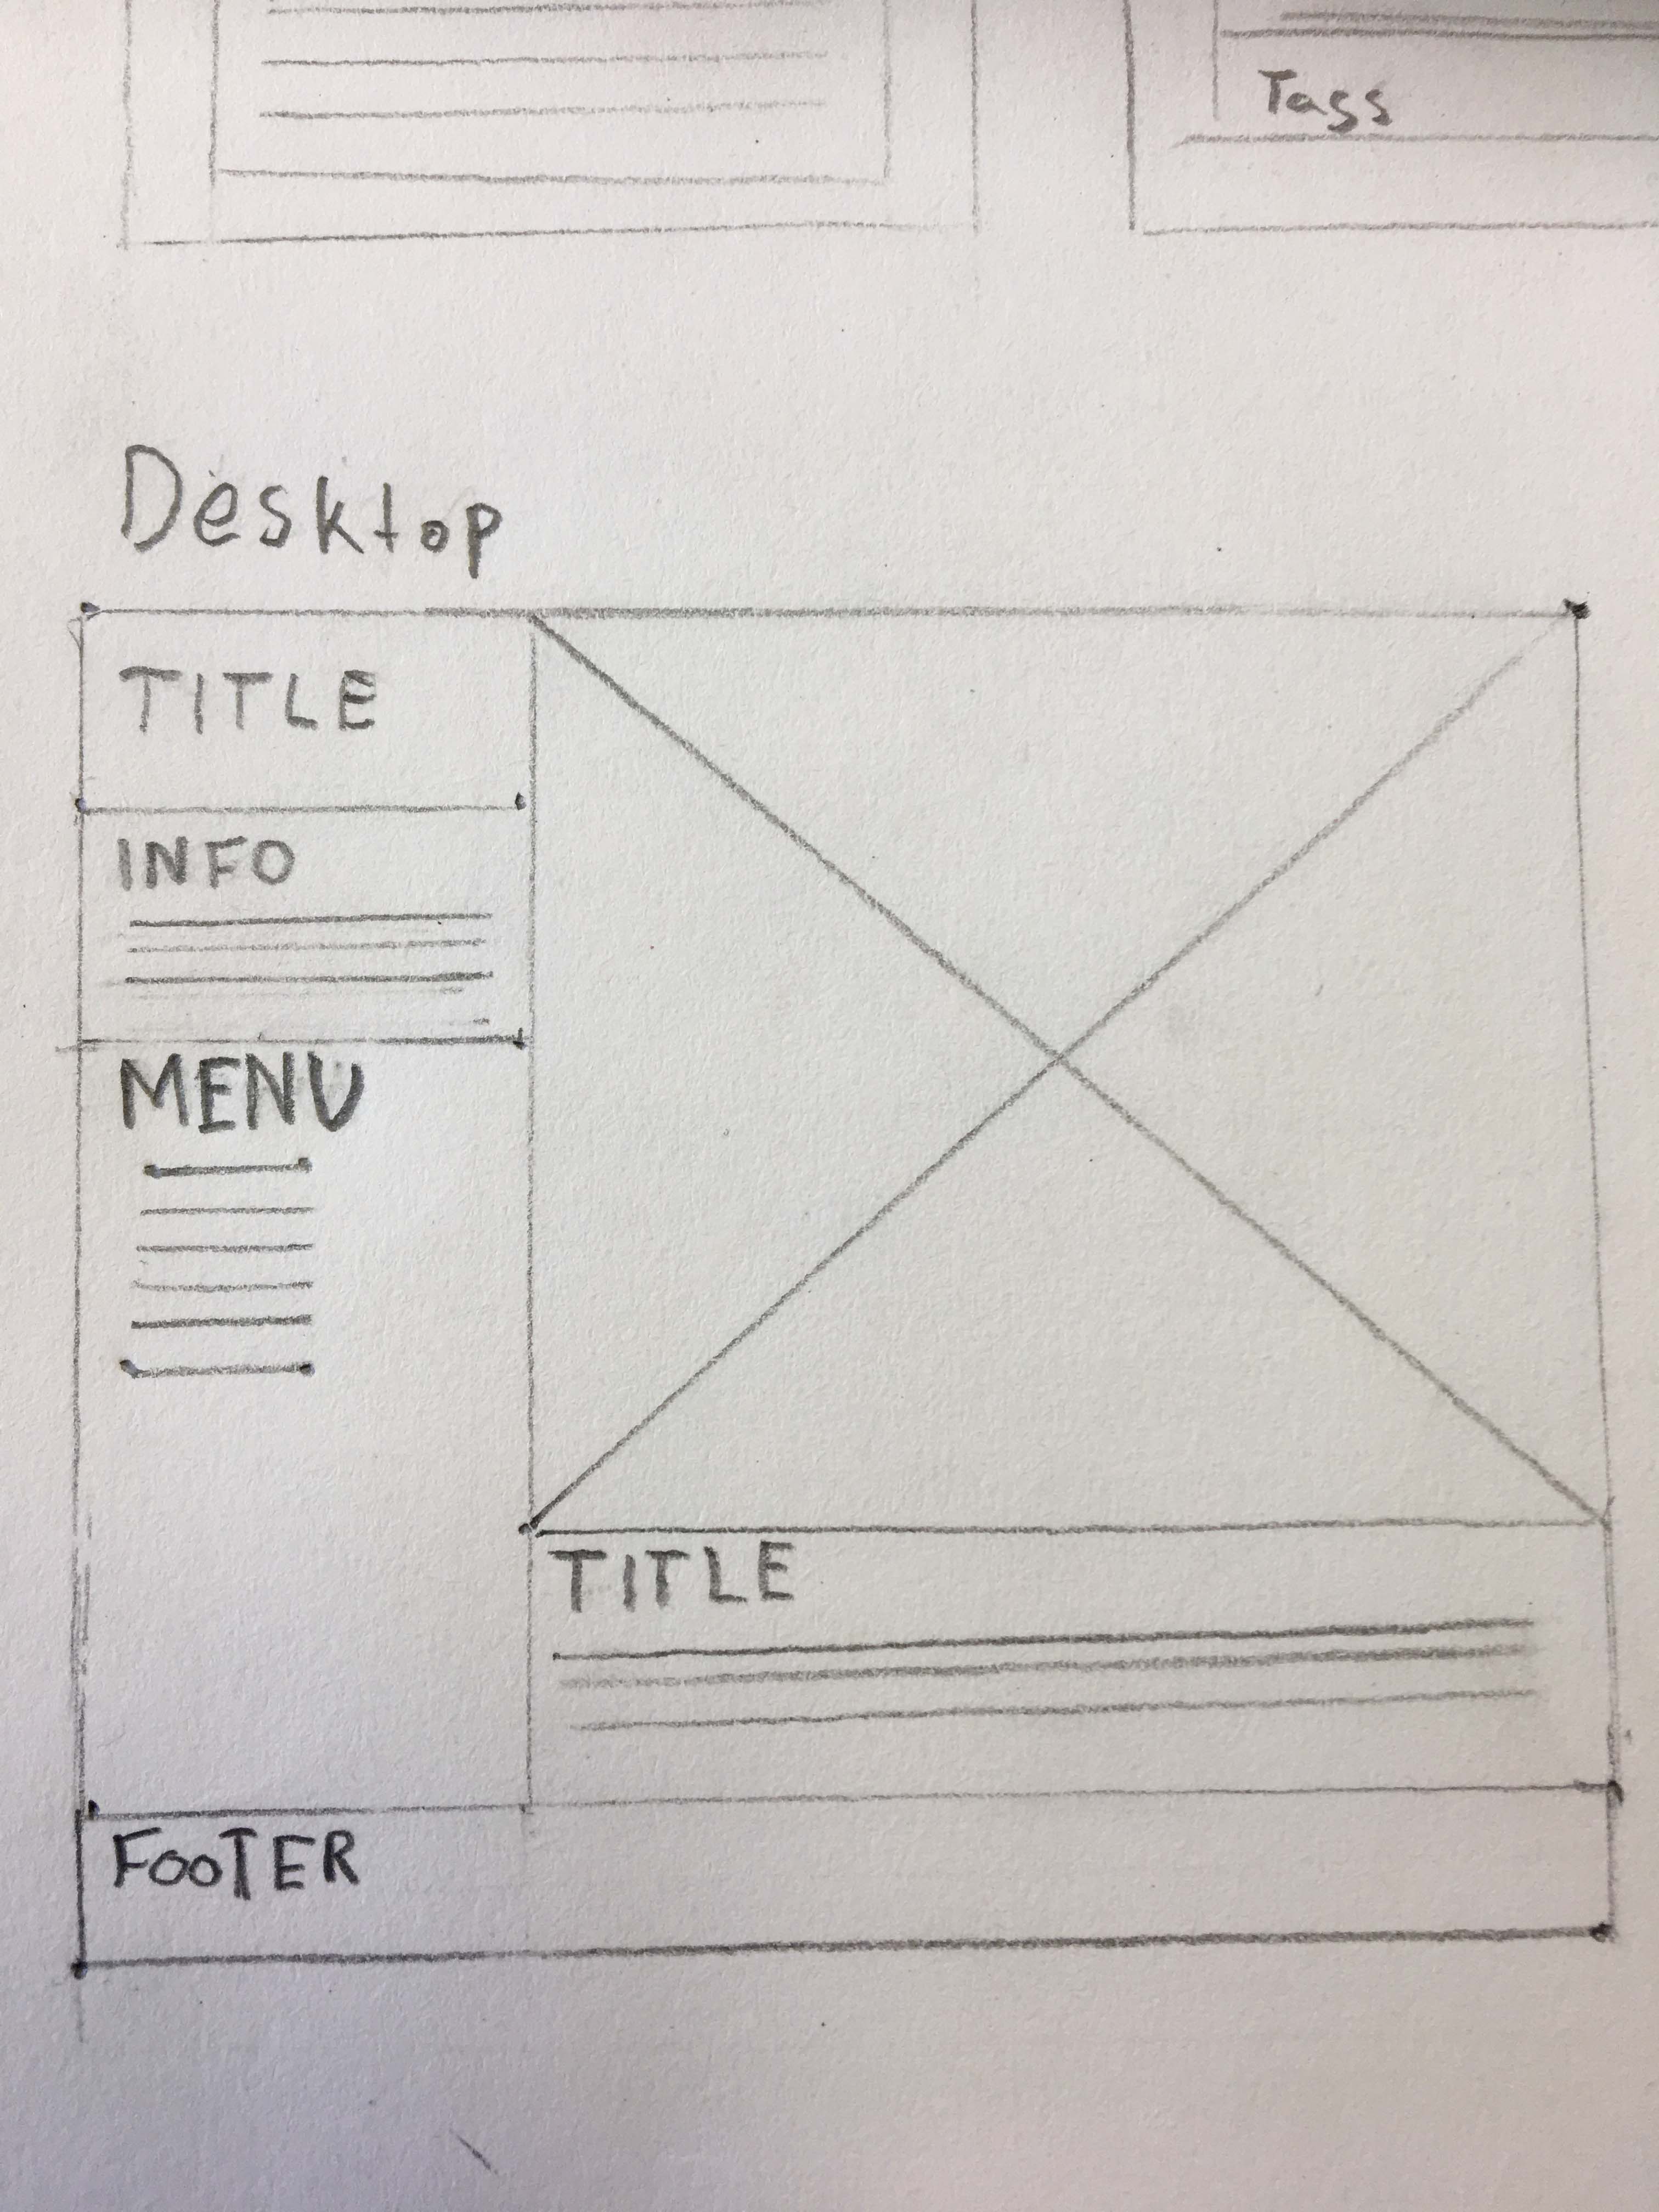 Tags
Desktop
TITLE
INFO
MENU
TITLE
FOOTER